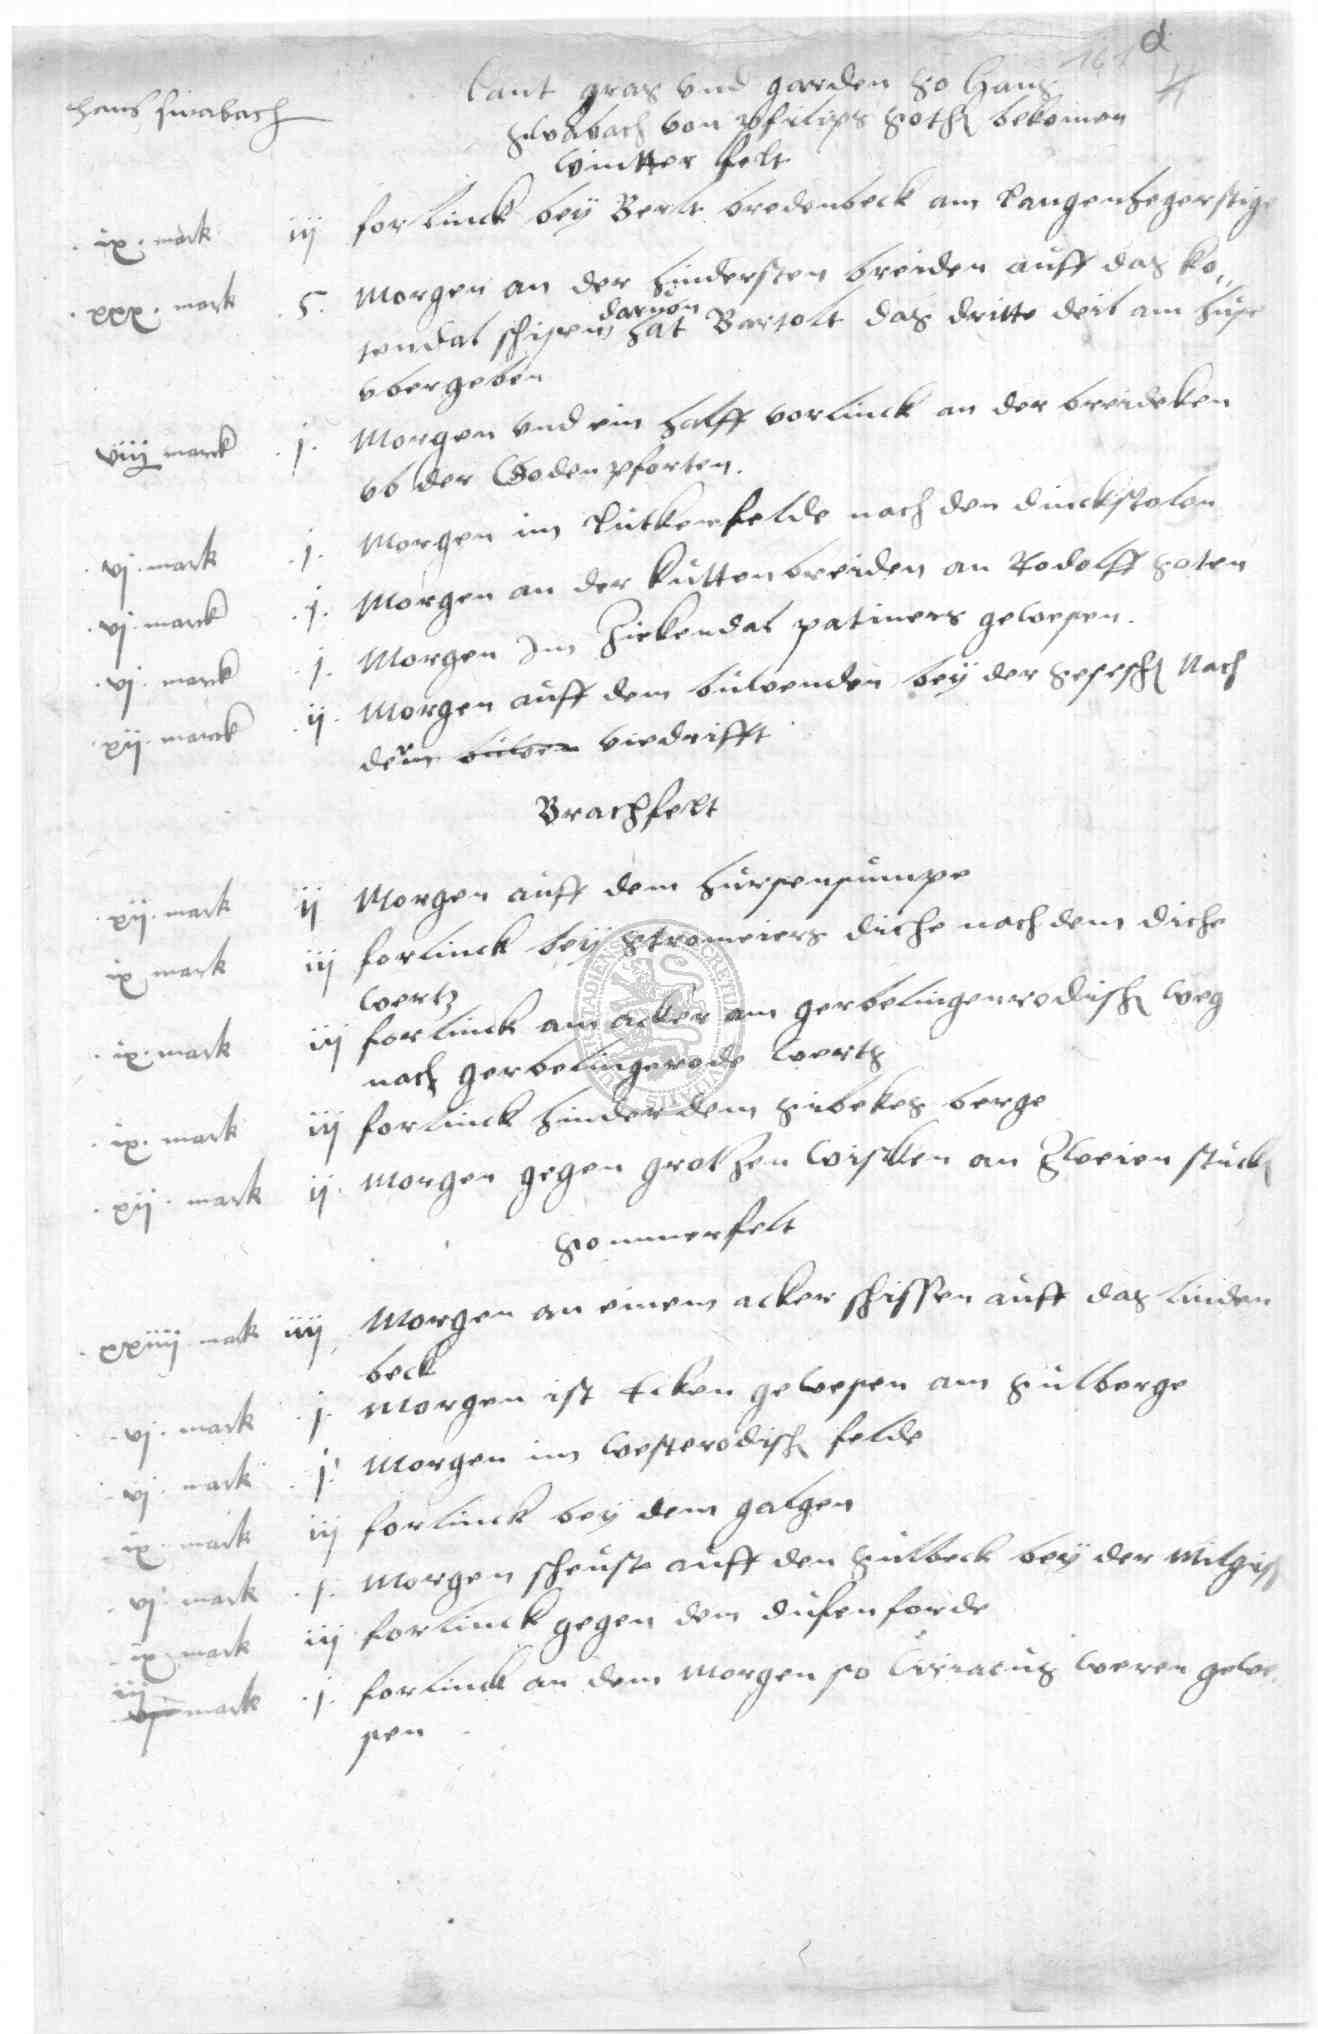 161 d
hans swabach
Lant gras vnd garden so Hans
swabach von philips soth bekomen
Wintter felt
ix mark iij forlinck bey Berlt bredenbeck am Langenhegerstige
xxx mark 5 Morgen an der hindersten breiden auff das ko„
darvon
tendal schisen hat Bartolt das dritte deil am huse
vbergeben
viiij marck j Morgen vnd ein halff vorlinck an der breideken
vb der Godenpforten.
vj mark j Morgen im Lutkenfelde nach den dinckstolen
vj marck j Morgen an der kuttenbreiden an Rodolff soten
vj marck j Morgen Im Ziekendal patiners gewesen.
xij marck ij Morgen auff dem buwenden bey der Nach
dem buwen viedrifft
Brachfelt
xij mark ij Morgen auff dem hursensumpe
ix mark iij forlinck bey stromeiers diche nach dem diche
wertz
ix mark iij forlinck am acker am gerbelingerrodisch weg
nach gerbelingerode werts
ix mark iij forlinck hinder dem sibekes berge
xij mark ij Morgen gegen grothen wischken an Zweien stuck
Sommerfelt
xxiiij mark iiij Morgen an einem acker schissen auff das linden
beck
vj mark j Morgen ist Ecken gewesen am sulberge
vj mark j Morgen im westerodisch felde
ix mark iij forlinck bey dem galgen
vj mark j Morgen scheust auff den sulbeck bey der
ix mark iij forlinck gegen dem dufenforde
iij
vj mark j forlinck an dem Morgen so Ciriacus weren gewe
sen